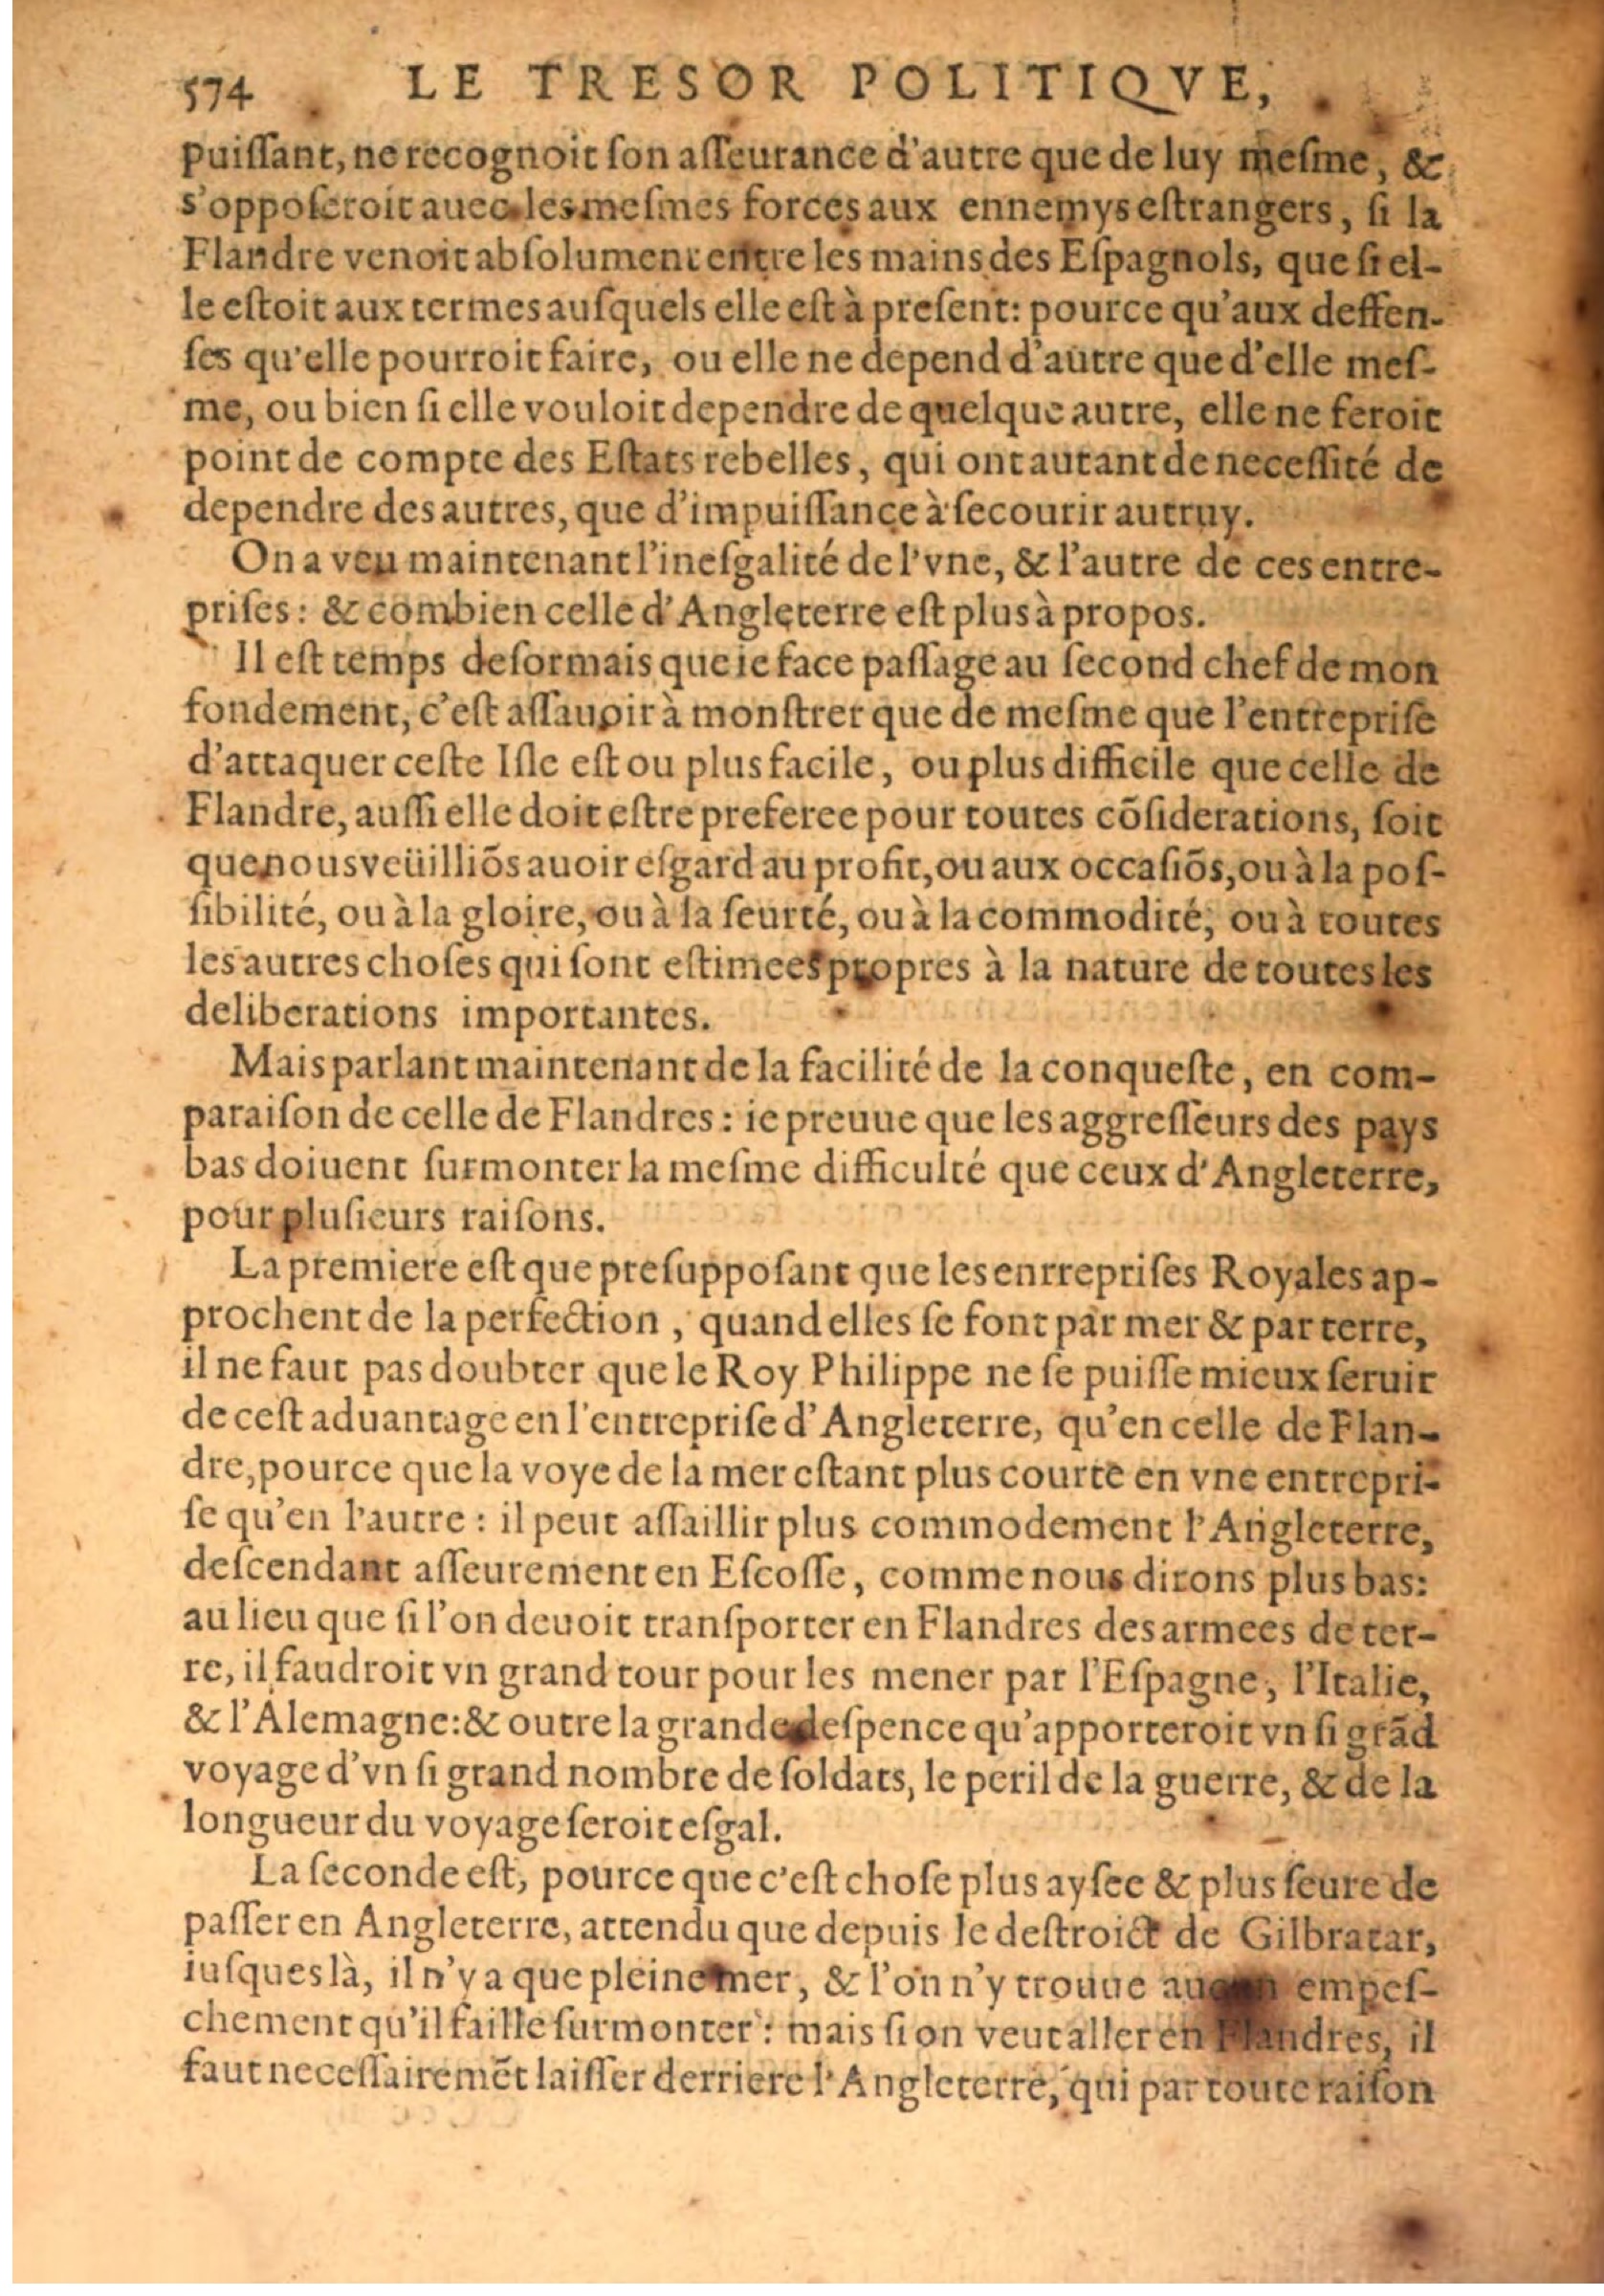 574 LE TRESOR POLITIQVE,
puiſſant, ne recognoit ſon aſſeurance d'autre que de luy meſme, &
s'oppoſeroit auec les meſmes forces aux ennemys eſtrangers, ſi la
Flandre venoit abſolument entre les mains des Eſpagnols, que ſi el-
le eſtoit aux termes auſquels elle eſt à preſent: pource qu'aux deffen-
ſes qu'elle pourroit faire, ou elle ne depend d'autre que d'elle meſ-
me, ou bien ſi elle vouloit dependre de quelque autre, elle ne feroit
point de compte des Eſtats rebelles, qui ont autant de neceſſité de
dependre des autres, que d'impuiſſance à ſecourir autruy.
On a veu maintenant l'ineſgalité de l'vne, & l'autre de ces entre-
priſes: & combien celle d'Angleterre eſt plus à propos.
Il eſt temps deſormais que ie face paſſage au ſecond chef de mon
fondement, c'eſt aſſauoir à monſtrer que de meſme que l'entrepriſe
d'attaquer ceſte Iſle eſt ou plus facile, ou plus difficile que celle de
Flandre, auſſi elle doit eſtre preferee pour toutes cõſiderations, ſoit
que nous veüilliõs auoir eſgard au profit, ou aux occaſiõs, ou à la poſ-
ſibilité, ou à la gloire, ou à la ſeurté, ou à la commodité, ou à toutes
les autres choſes qui ſont eſtimees propres à la nature de toutes les
deliberations importantes.
Mais parlant maintenant de la facilité de la conqueſte, en com-
paraiſon de celle de Flandres: ie preuue que les aggreſſeurs des pays
bas doiuent ſurmonter la meſme difficulté que ceux d'Angleterre,
pour pluſieurs raiſons.
La premiere eſt que preſuppoſant que les enrrepriſes Royales ap-
prochent de la perfection, quand elles ſe font par mer & par terre,
il ne faut pas doubter que le Roy Philippe ne ſe puiſſe mieux ſeruir
de ceſt aduantage en l'entrepriſe d'Angleterre, qu'en celle de Flan-
dre, pource que la voye de la mer eſtant plus courte en vne entrepri-
ſe qu'en l'autre: il peut aſſaillir plus commodement l'Angleterre,
deſcendant aſſeurement en Eſcoſſe, comme nous dirons plus bas:
au lieu que ſi l'on deuoit tranſporter en Flandres des armees de ter-
re, il faudroit vn grand tour pour les mener par l'Eſpagne, l'Italie,
& l'Alemagne: & outre la grande deſpence qu'apporteroit vn ſi grãd
voyage d'vn ſi grand nombre de ſoldats, le peril de la guerre, & de la
longueur du voyage ſeroit eſgal.
La ſeconde eſt, pource que c'eſt choſe plus ayſee & plus ſeure de
paſſer en Angleterre, attendu que depuis le deſtroict de Gilbratar,
iuſques là, il n'y a que pleine mer, & l'on n'y trouue aucun empeſ-
chement qu'il faille ſurmonter: mais ſi on veut aller en Flandres, il
faut neceſſairemẽt laiſſer derriere l'Angleterre, qui par toute raiſon